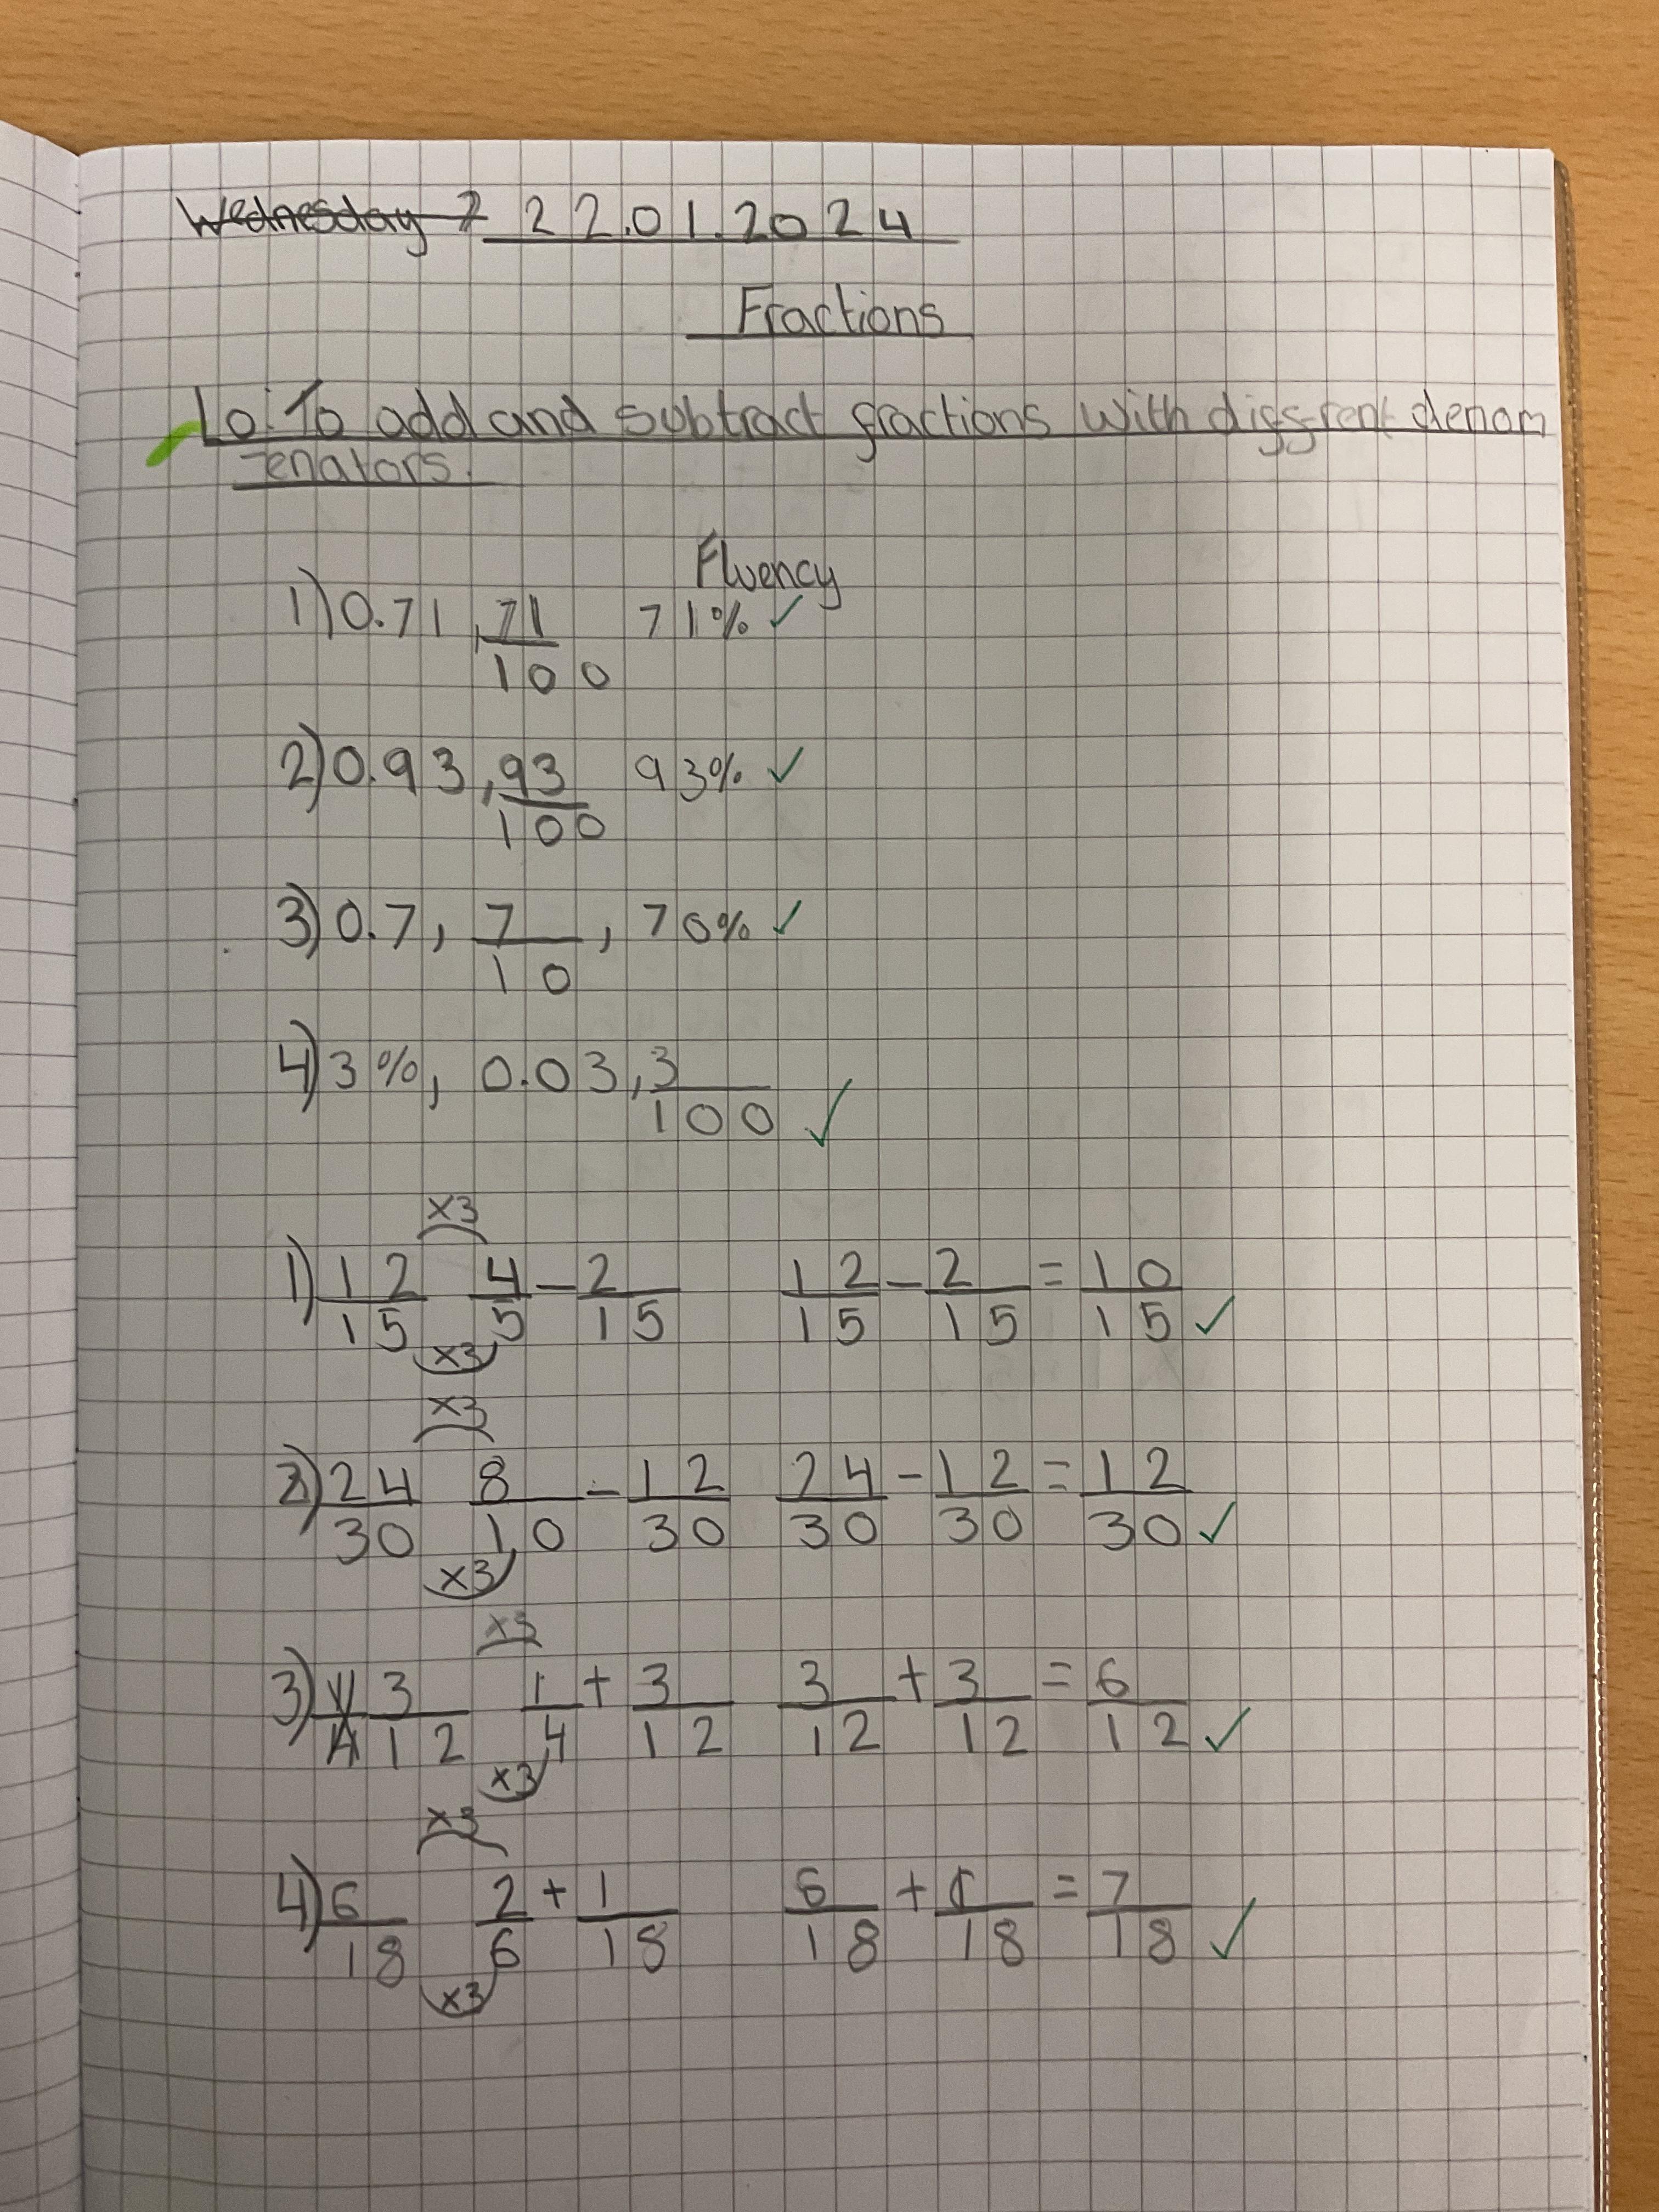 Wednesday 2 22.01.2024
Fractions
Lo: To add and subtract fractions with diggrent denom
enators.
Fluency
1) 0.71, 71/100 71% ✓
2) 0.93, 93/100 93% ✓
3) 0.7, 7/10, 70% ✓
4) 3%, 0.03, 3/100 ✓
x3
1) 12/15 4/5 - 2/15 12/15 - 2/15 = 10/15 ✓
x3
x3
2) 24/30 8/10 - 12/30 24/30 - 12/30 = 12/30 ✓
x3
x3
3) 3/12 1/4 + 3/12 3/12 + 3/12 = 6/12 ✓
x3
x3
4) 6/18 2/6 + 1/18 6/18 + 1/18 = 7/18 ✓
x3